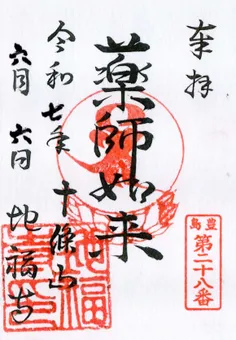 奉拝
豊島
第二十八番
薬師如来
令和七年
六月六日
十條山
地福寺